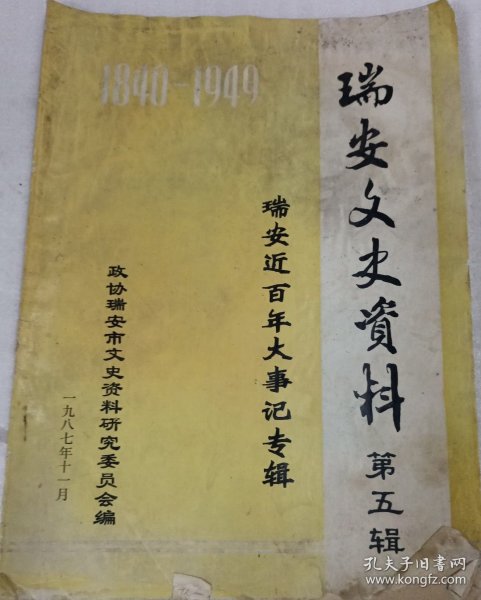 1840-1949
瑞安文史資料
第五辑
瑞安近百年大事记专辑
政协瑞安市文史资料研究委员会编
一九八七年十一月
孔夫子旧书网
www.kongfz.com